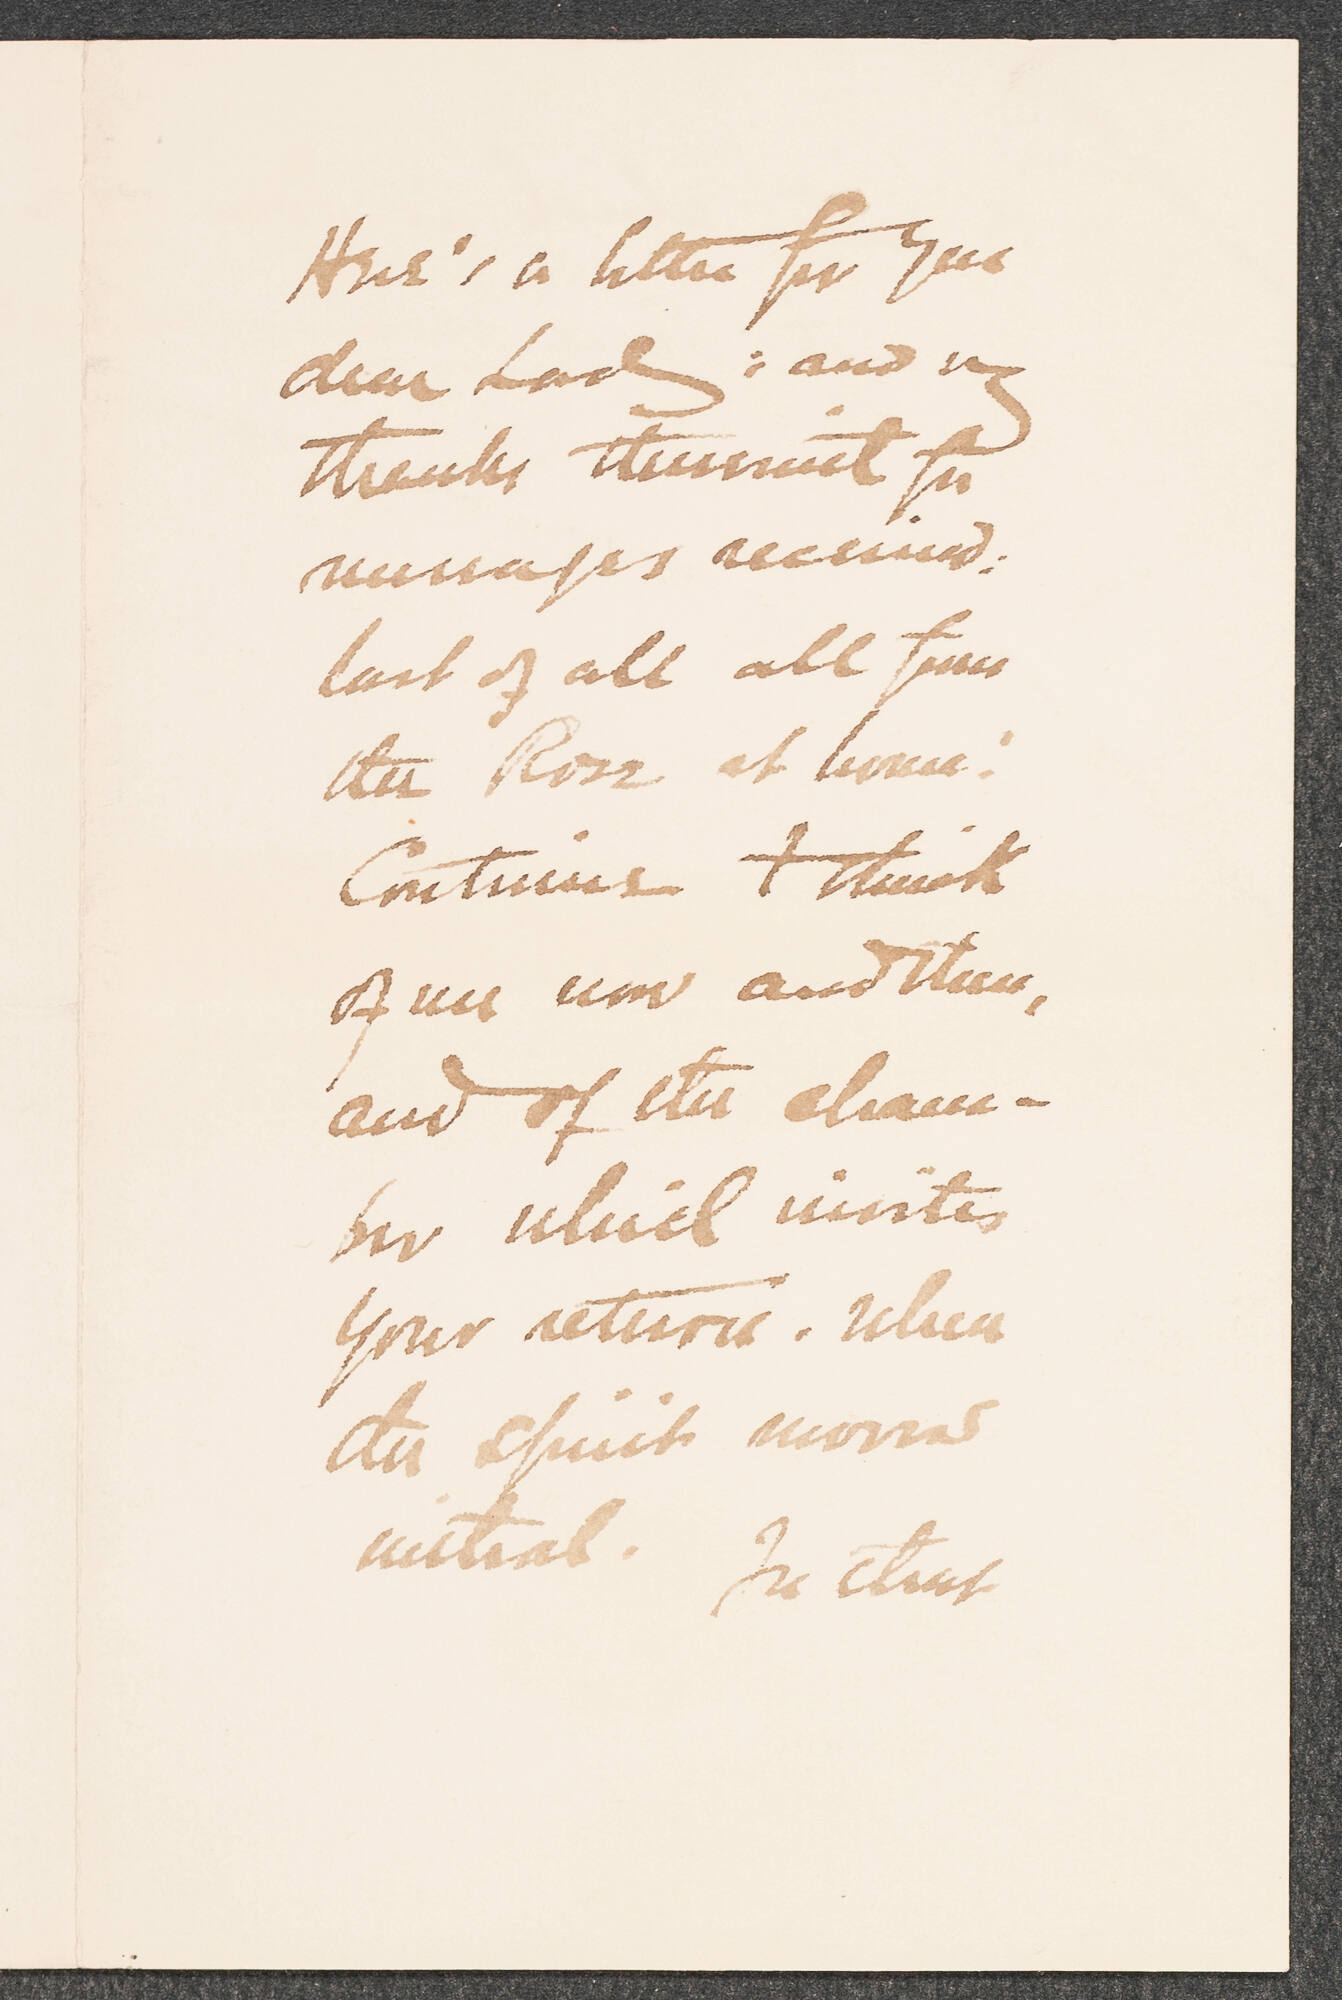 Here's a letter for you
dear Lady: and my
thanks therewith for
messages received:
last of all all from
the Rose at home:
Continue to think
of me now and then,
and of the cham-
ber which invites
your return. when
the spirit moves
withal. In that